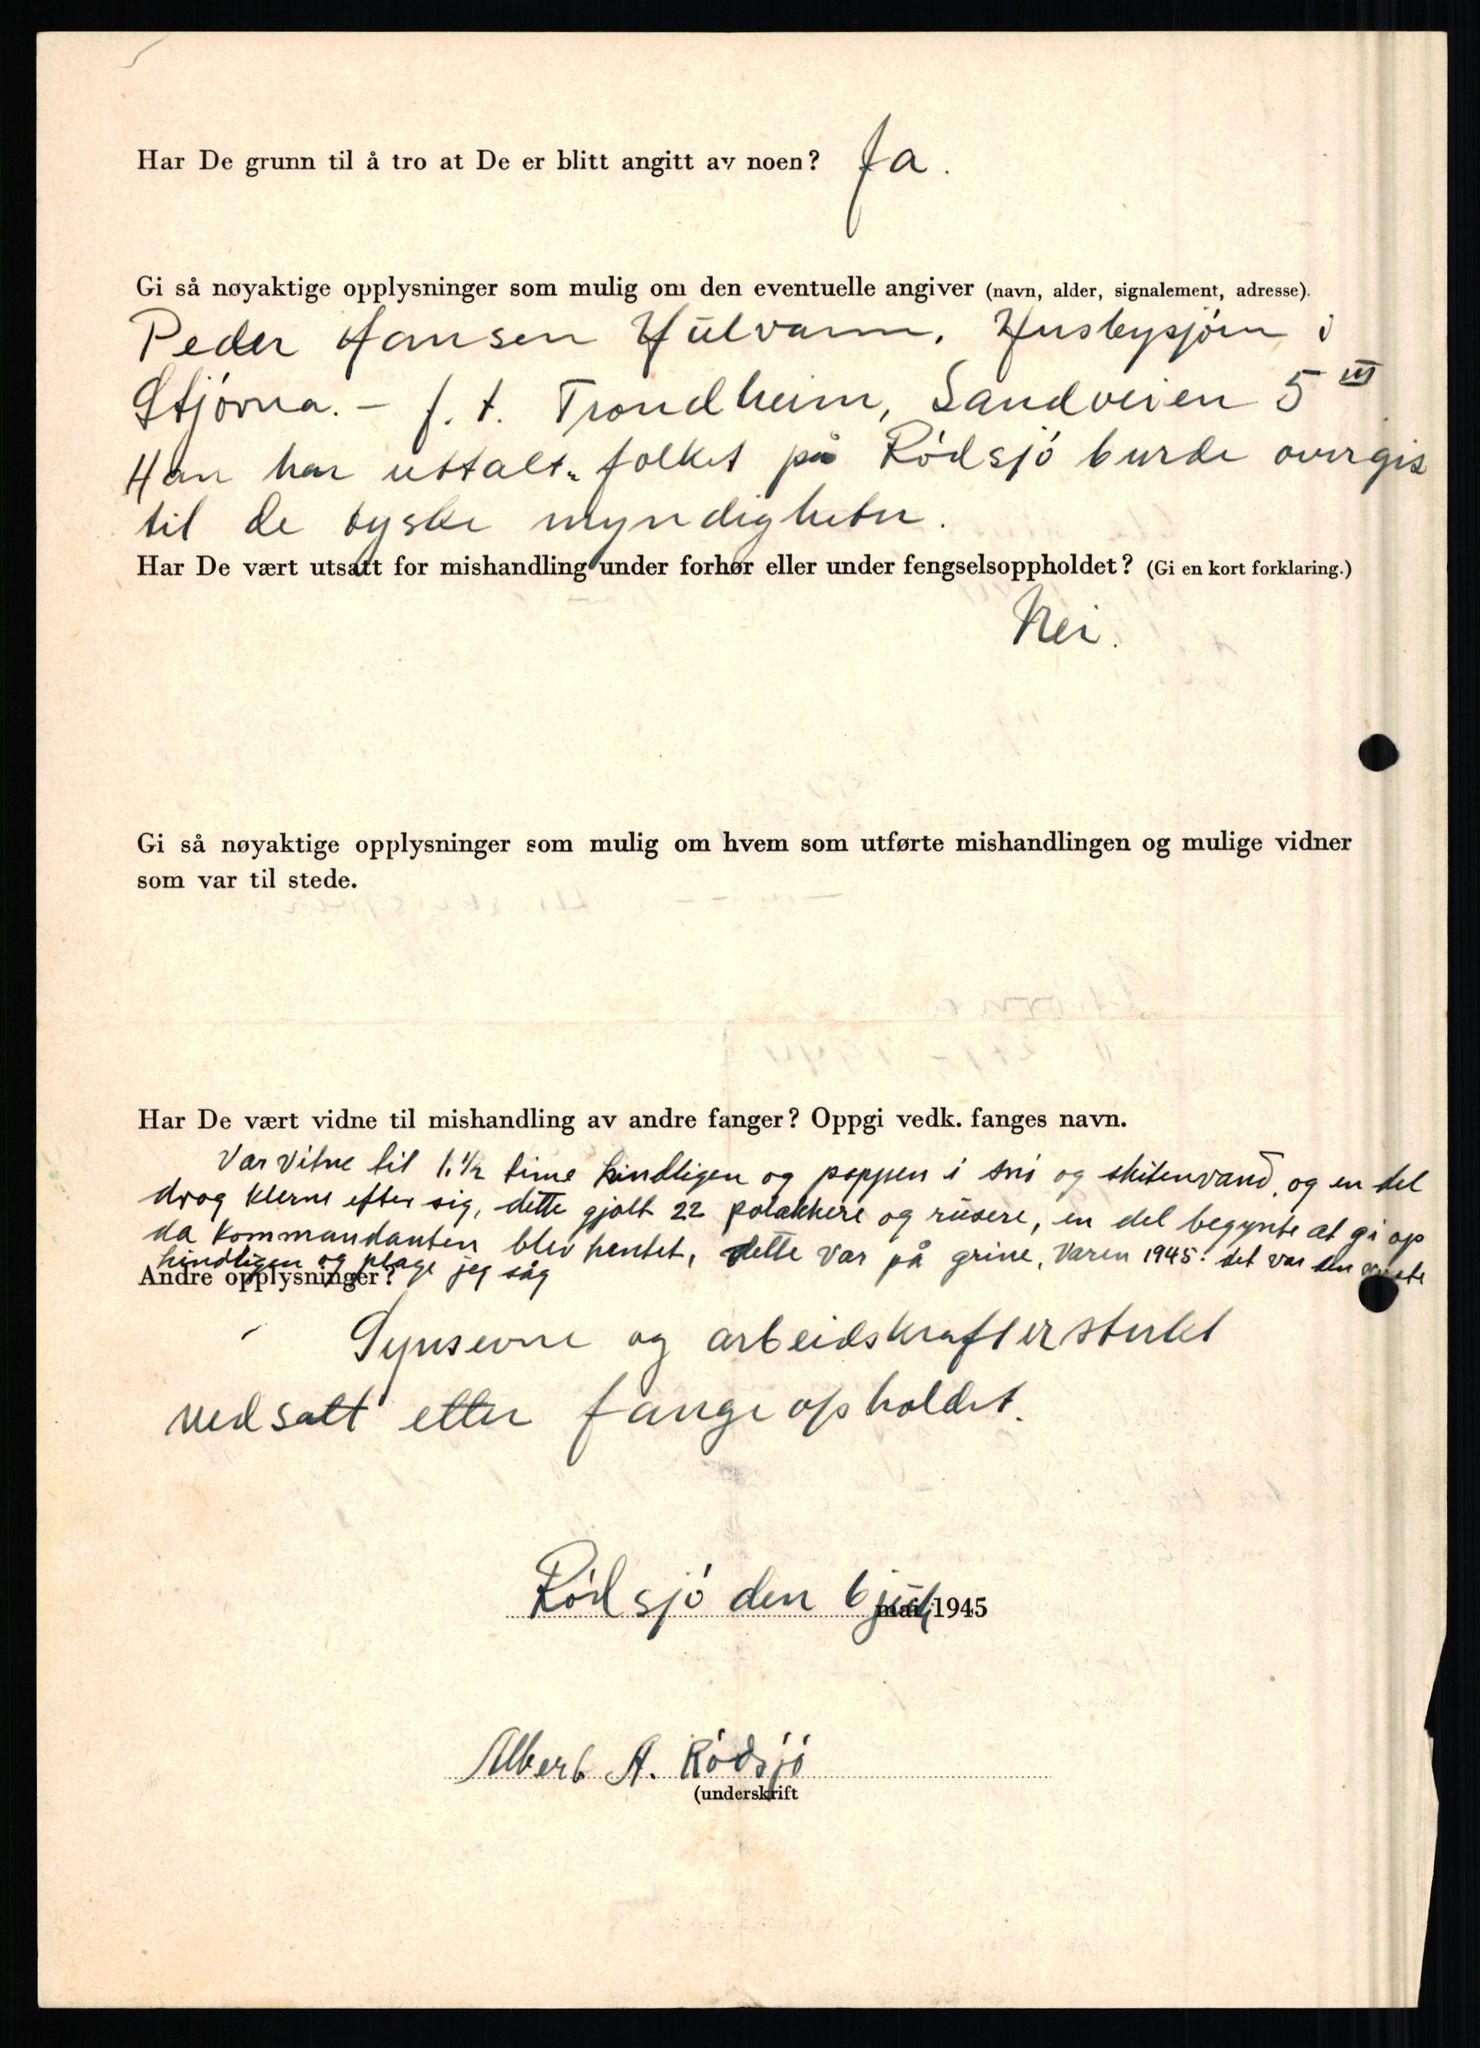 Har De grunn til å tro at De er blitt angitt av noen? Ja.
Gi så nøyaktige opplysninger som mulig om den eventuelle angiver (navn, alder, signalement, adresse).
Peder Hansen Hulvann, Husbysjøen i
Stjørna. - f. t. Trondheim, Sandveien 5 III
Han har uttalt folket på Rødsjø burde overgis
til de tyske myndigheter.
Har De vært utsatt for mishandling under forhør eller under fengselsoppholdet? (Gi en kort forklaring.)
Nei.
Gi så nøyaktige opplysninger som mulig om hvem som utførte mishandlingen og mulige vidner
som var til stede.
Har De vært vidne til mishandling av andre fanger? Oppgi vedk. fanges navn.
Var vitne til 1.½ time hindligen og poppen i snö og skitenvand, og en del
drog klerne efter sig, dette gjalt 22 polakkere og rüsere, en del begynte at gi op
da kommandanten blev hentet, dette var på grine, Varen 1945. det var den
hindligen og plage jeg såg
Andre opplysninger?
Synsevne og arbeidskraft er sterkt
nedsatt etter fangeopholdet.
Rødsjö den 6 juli mai 1945
Albert A. Rødsjö
(underskrift